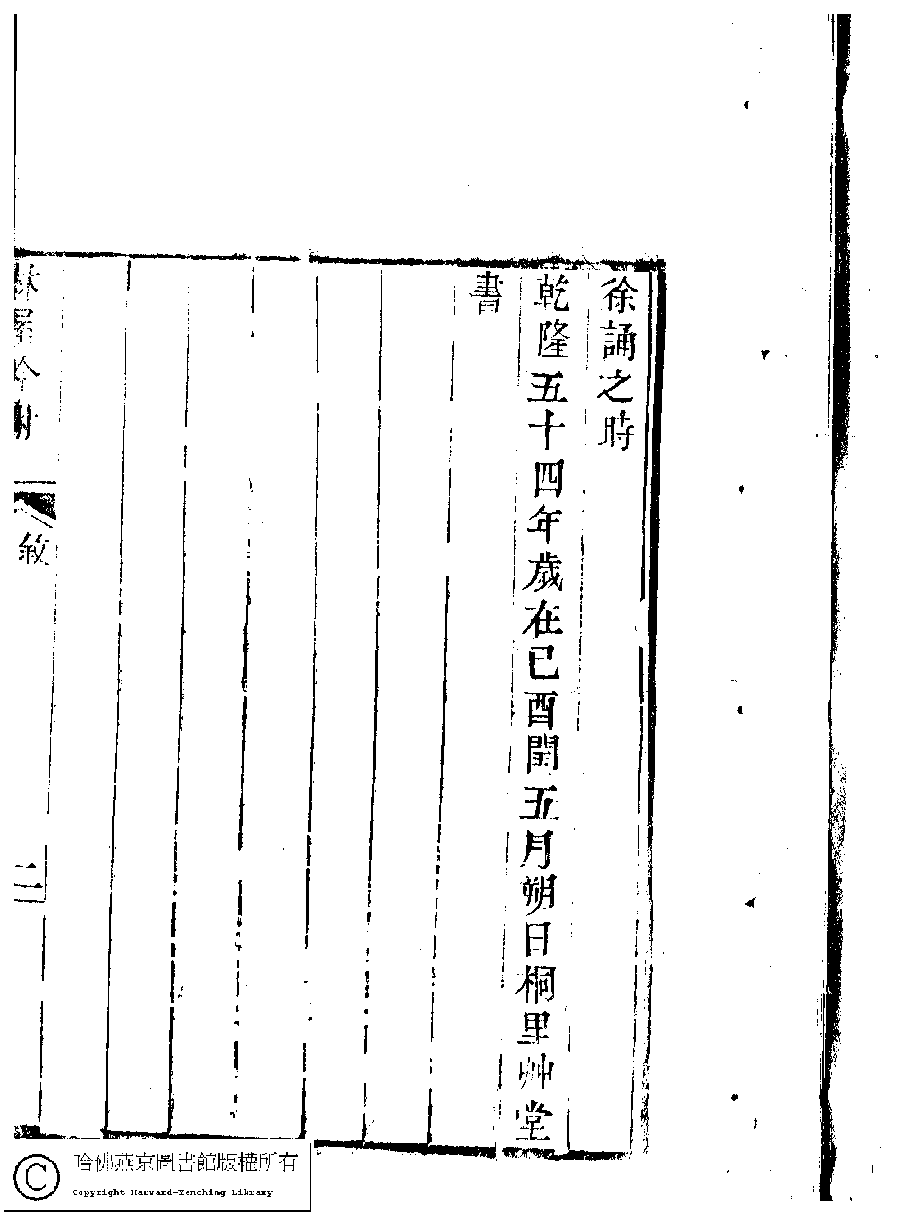 徐誦之時
乾隆五十四年歲在己酉閏五月朔日桐里艸堂
書
林屋吟榭
敘
二
哈佛燕京圖書館版權所有
Copyright Harvard-Yenching Library